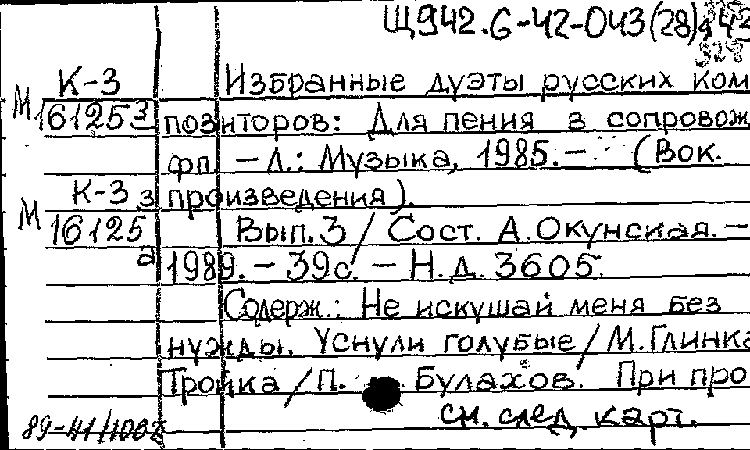 Щ942.6-42-043(28)
К-3 Избранные дуэты русских ком
М 161253 позиторов: Для пения в сопровож
фп. - Л.: Музыка, 1985. - (Вок.
К-3 произведения).
М 16125 Вып. 3 / Сост. А. Окунская. -
а 1989. - 39с. - Н.д. 3605.
Содерж.: Не искушай меня без
нужды. Уснули голубые / М. Глинка
Тройка / П. Булахов. При про
см. след. карт.